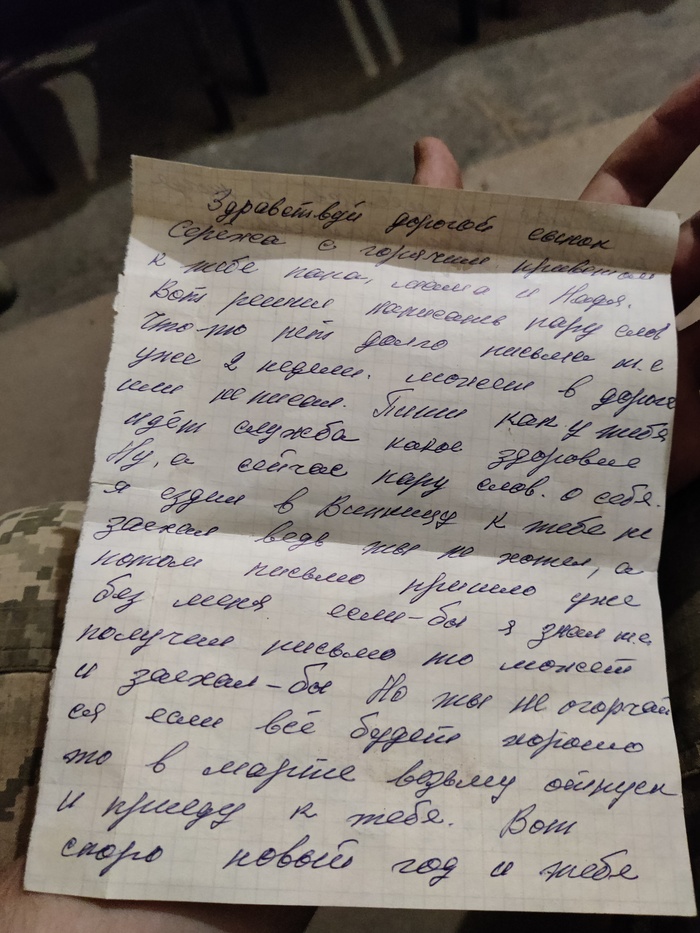 Здравствуй дорогой сынок
Сережа с горячим приветом
к тебе папа, мама и Надя.
Вот решил написать пару слов
Что-то нет долго письма т.е
уже 2 недели. может в дороге
или не писал. Пиши как у тебя
идёт служба какое здоровье
Ну, а сейчас пару слов. о себе.
Я ездил в Винницу к тебе не
заехал ведь ты не хотел, а
потом письмо пришло уже
без меня если-бы я знал т.е
получил письмо то может
и заехал-бы Но ты не огорчай
ся если всё будет хорошо
то в марте возьму отпуск
и приеду к тебе. Вот
скоро новый год и тебе